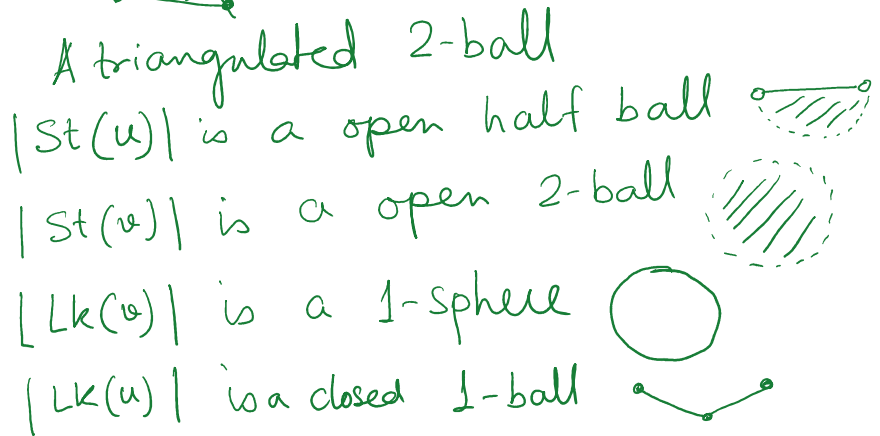 A triangulated 2-ball
|St(u)| is a open half ball
|St(v)| is a open 2-ball
|Lk(v)| is a 1-sphere
|Lk(u)| is a closed 1-ball